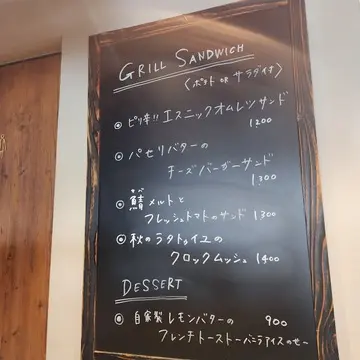 GRILL SANDWICH
〈ポテト or サラダイオ〉
ピリ辛!! エスニックオムレツサンド
1200
パセリバターの
チーズバーガーサンド
1300
サバ
鯖メルトと
フレッシュトマトのサンド 1300
秋のラタトゥイユの
クロックムッシュ 1400
DESSERT
自家製レモンバターの 900
フレンチトースト〜バニラアイスのせ〜